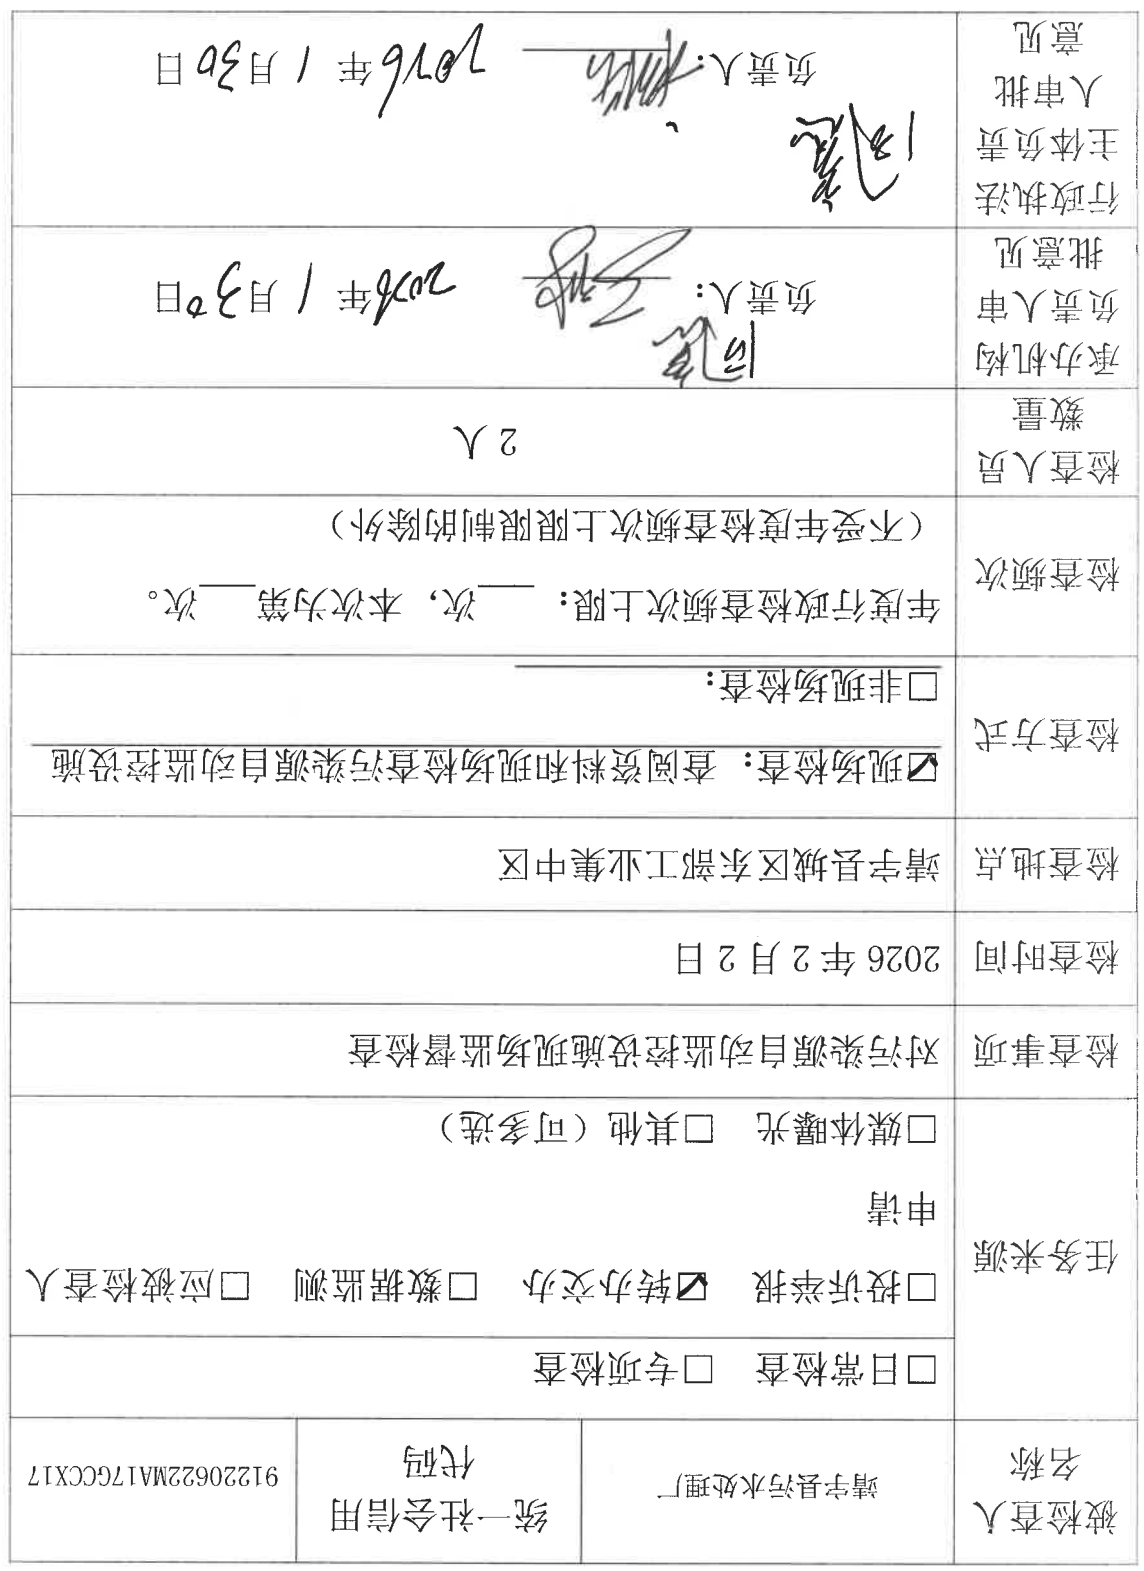 被检查人
名称
靖宇县污水处理厂
统一社会信用
代码
91220622MA17GCCX17
任务来源
□日常检查 □专项检查
□投诉举报 ☑转办交办 □数据监测 □应被检查人
申请
□媒体曝光 □其他（可多选）
检查事项
对污染源自动监控设施现场监督检查
检查时间
2026 年 2 月 2 日
检查地点
靖宇县城区东部工业集中区
检查方式
☑现场检查：查阅资料和现场检查污染源自动监控设施
□非现场检查：
检查频次
年度行政检查频次上限：___次，本次为第___次。
（不受年度检查频次上限限制的除外）
检查人员
数量
2 人
承办机构
负责人审
批意见
同意
负责人：
2026年 1 月30日
行政执法
主体负责
人审批
意见
同意
负责人：
2026年 1 月30日